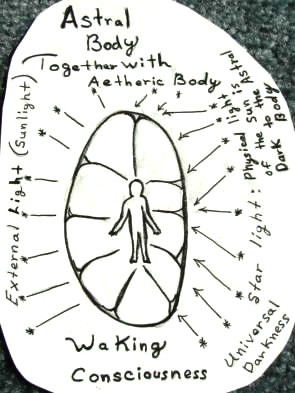 Astral
Body
Together with
Aetheric Body
External Light (Sunlight)
Star light: Physical light is
of the Sun Astral
to the
Dark Body
Universal
Darkness
Waking
Consciousness